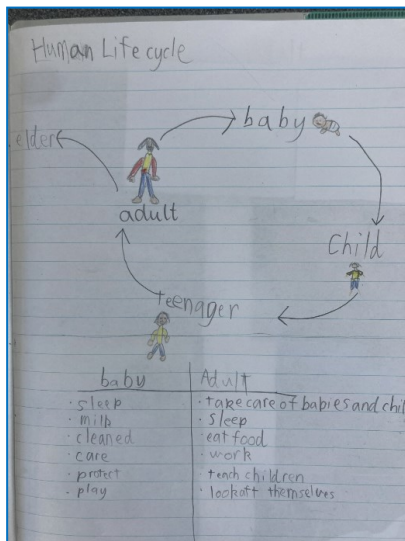 Human Life cycle
baby
elder
adult
Child
teenager
baby Adult
· sleep · take care of babies and chil
· milk · sleep
· cleaned · eat food
· care · work
· protect · teach children
· play · look aft themselves